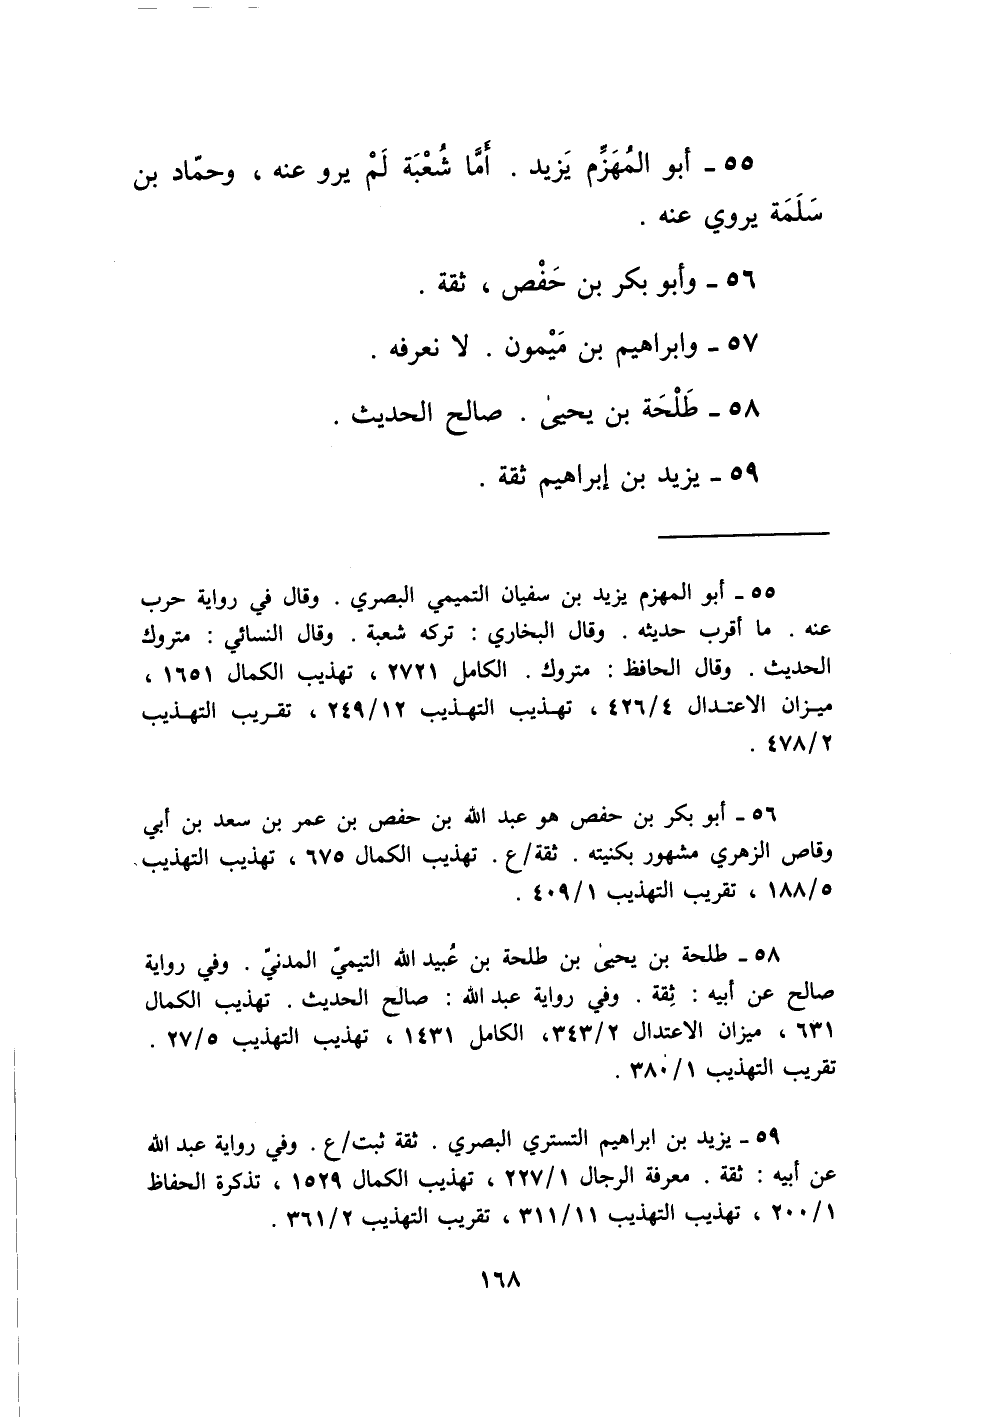 ٥٥ ـ أبو المُهَزِّم يَزيد . أَمَّا شُعْبَة لَمْ يرو عنه ، وحمّاد بن
سَلَمَة يروي عنه .
٥٦ ـ وأبو بكر بن حَفْص ، ثقة .
٥٧ ـ وابراهيم بن مَيْمون . لا نعرفه .
٥٨ ـ طَلْحَة بن يحيىٰ . صالح الحديث .
٥٩ ـ يزيد بن إبراهيم ثقة .
٥٥ ـ أبو المهزم يزيد بن سفيان التميمي البصري . وقال في رواية حرب
عنه . ما أقرب حديثه . وقال البخاري : تركه شعبة . وقال النسائي : متروك
الحديث . وقال الحافظ : متروك . الكامل ٢٧٢١ ، تهذيب الكمال ١٦٥١ ،
ميـزان الاعتـدال ٤٢٦/٤ ، تهـذيب التهـذيب ٢٤٩/١٢ ، تقـريب التهـذيب
٤٧٨/٢ .
٥٦ ـ أبو بكر بن حفص هو عبد الله بن حفص بن عمر بن سعد بن أبي
وقاص الزهري مشهور بكنيته . ثقة/ع . تهذيب الكمال ٦٧٥ ، تهذيب التهذيب
١٨٨/٥ ، تقريب التهذيب ٤٠٩/١ .
٥٨ ـ طلحة بن يحيىٰ بن طلحة بن عُبيد الله التيميّ المدنيّ . وفي رواية
صالح عن أبيه : ثِقة . وفي رواية عبد الله : صالح الحديث . تهذيب الكمال
٦٣١ ، ميزان الاعتدال ٣٤٣/٢، الكامل ١٤٣١ ، تهذيب التهذيب ٢٧/٥ .
تقريب التهذيب ٣٨٠/١ .
٥٩ ـ يزيد بن ابراهيم التستري البصري . ثقة ثبت/ع . وفي رواية عبد الله
عن أبيه : ثقة . معرفة الرجال ٢٢٧/١ ، تهذيب الكمال ١٥٢٩ ، تذكرة الحفاظ
٢٠٠/١ ، تهذيب التهذيب ٣١١/١١ ، تقريب التهذيب ٣٦١/٢ .
١٦٨